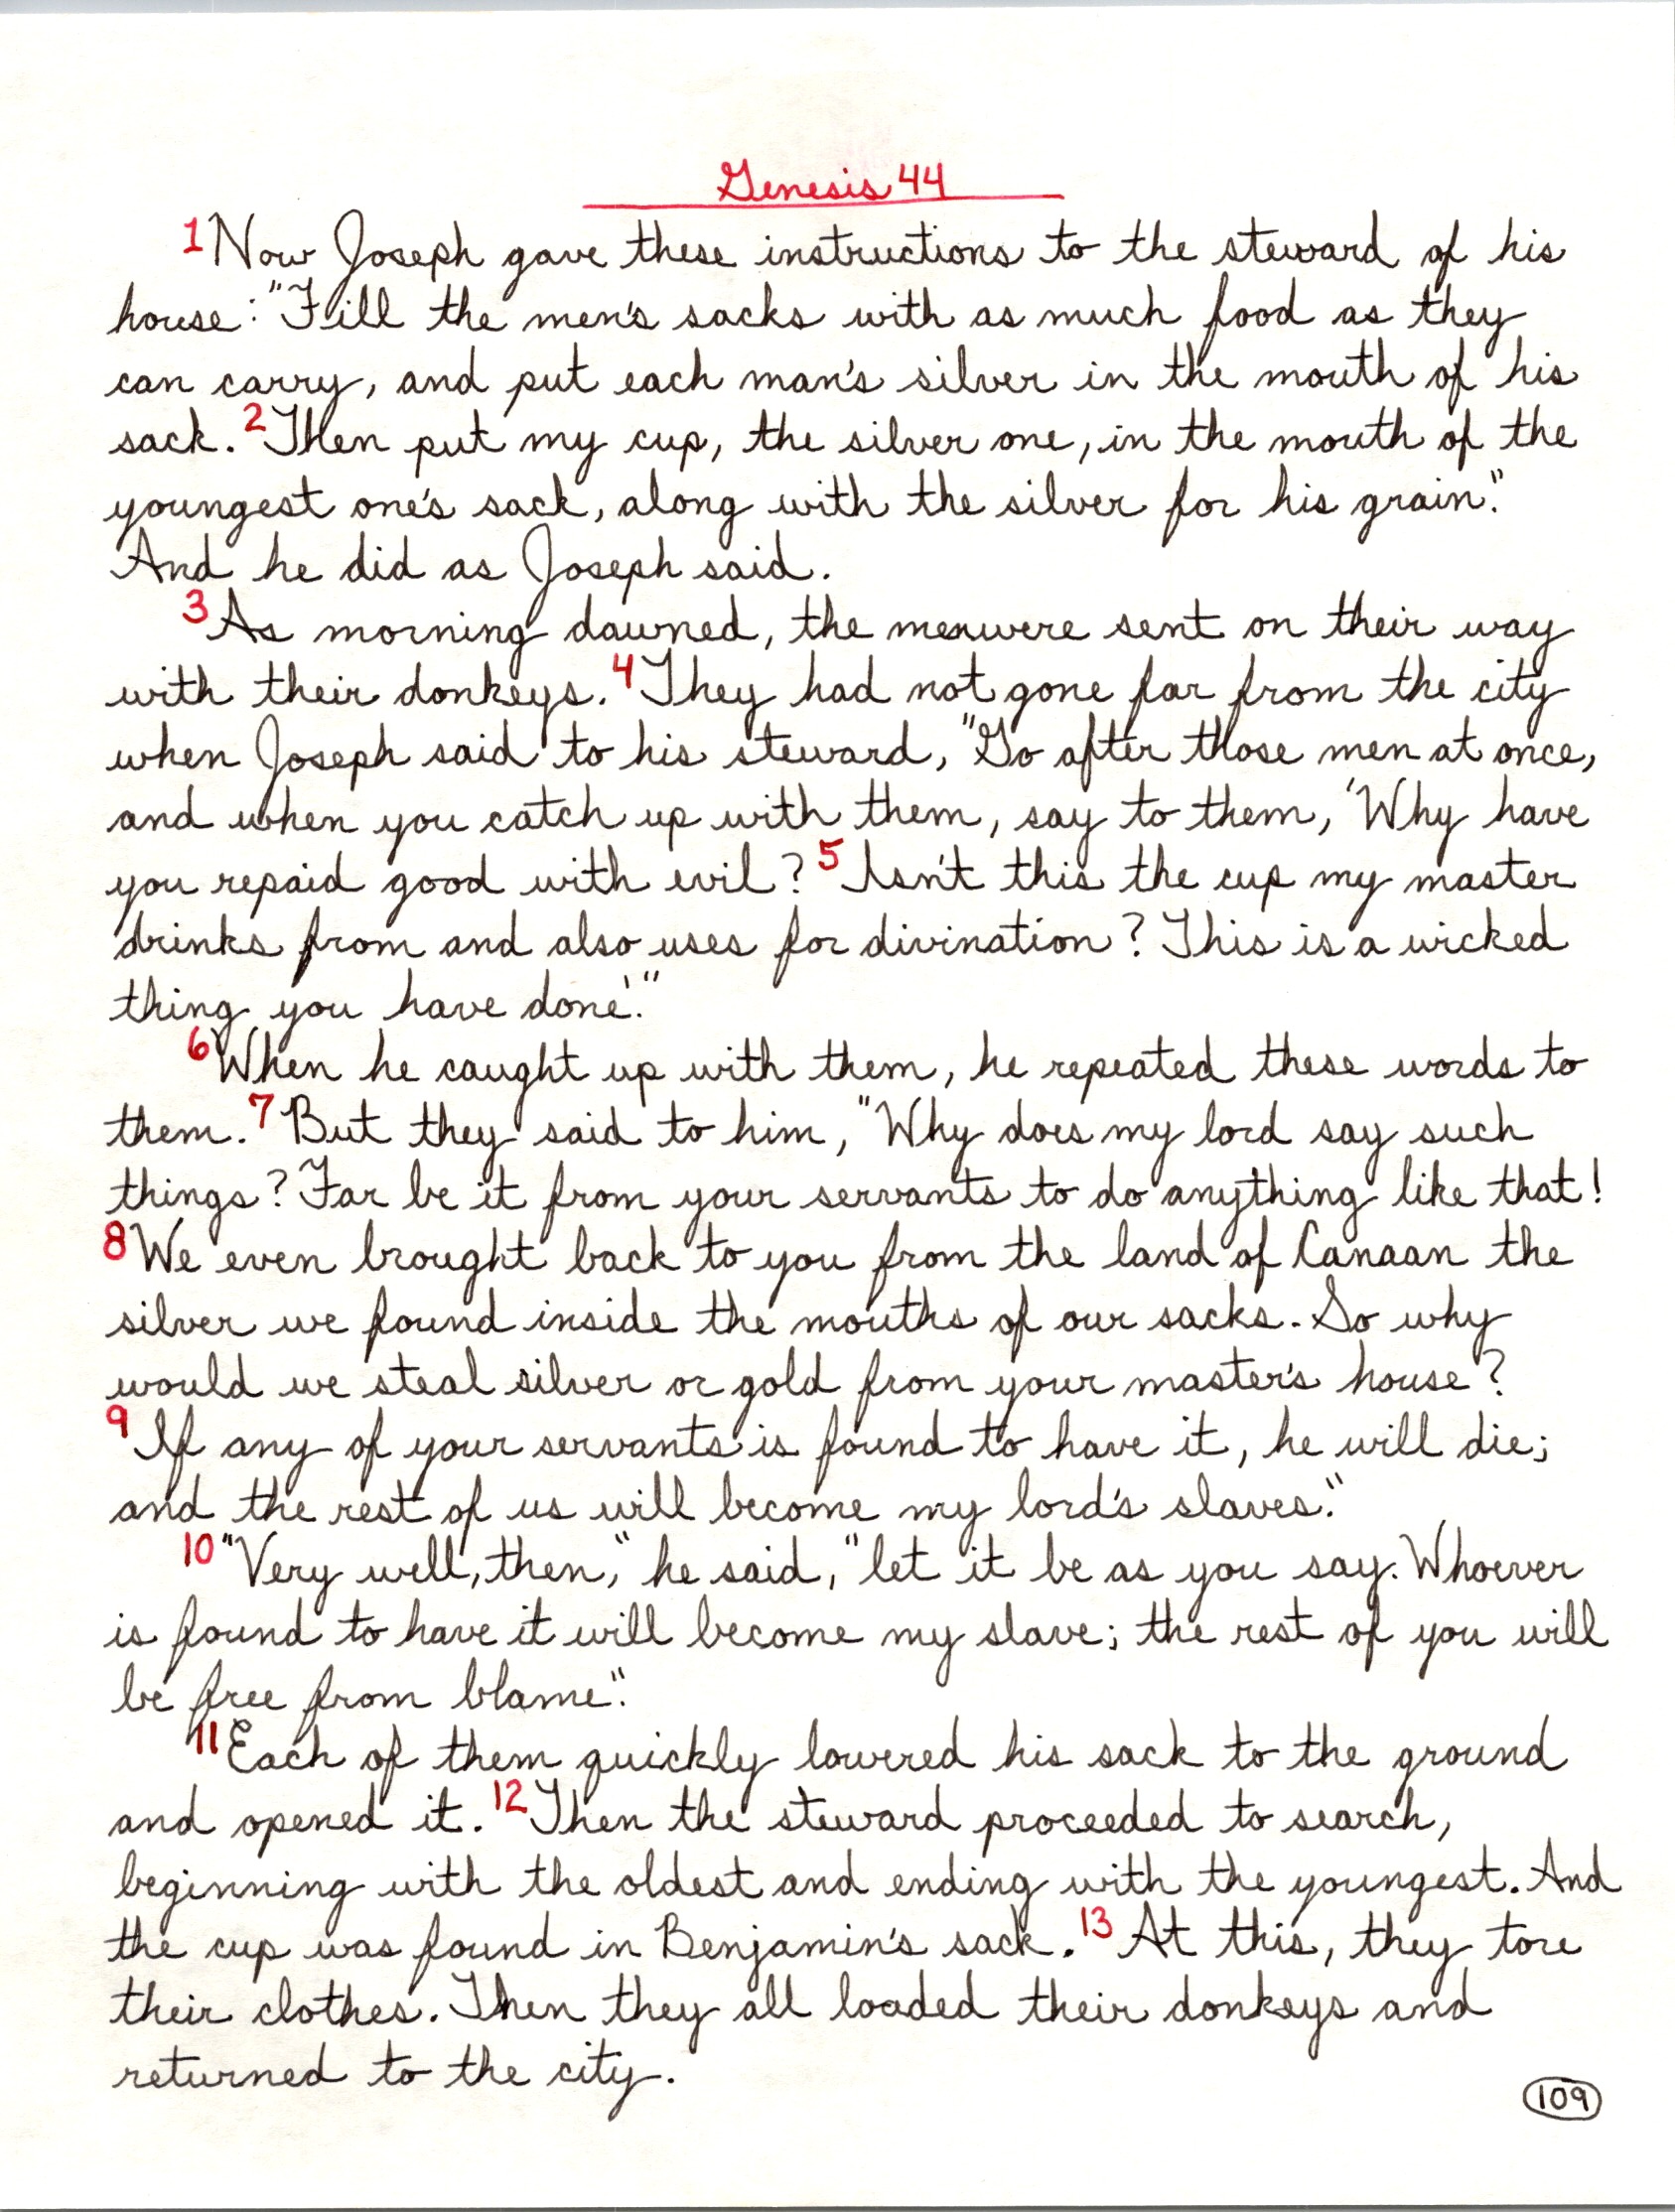 Genesis 44
1 Now Joseph gave these instructions to the steward of his
house: "Fill the men's sacks with as much food as they
can carry, and put each man's silver in the mouth of his
sack. 2 Then put my cup, the silver one, in the mouth of the
youngest one's sack, along with the silver for his grain."
And he did as Joseph said.
3 As morning dawned, the men were sent on their way
with their donkeys. 4 They had not gone far from the city
when Joseph said to his steward, "Go after those men at once,
and when you catch up with them, say to them, 'Why have
you repaid good with evil? 5 Isn't this the cup my master
drinks from and also uses for divination? This is a wicked
thing you have done.'"
6 When he caught up with them, he repeated these words to
them. 7 But they said to him, "Why does my lord say such
things? Far be it from your servants to do anything like that!
8 We even brought back to you from the land of Canaan the
silver we found inside the mouths of our sacks. So why
would we steal silver or gold from your master's house?
9 If any of your servants is found to have it, he will die;
and the rest of us will become my lord's slaves."
10 "Very well, then," he said, "let it be as you say. Whoever
is found to have it will become my slave; the rest of you will
be free from blame."
11 Each of them quickly lowered his sack to the ground
and opened it. 12 Then the steward proceeded to search,
beginning with the oldest and ending with the youngest. And
the cup was found in Benjamin's sack. 13 At this, they tore
their clothes. Then they all loaded their donkeys and
returned to the city.
109